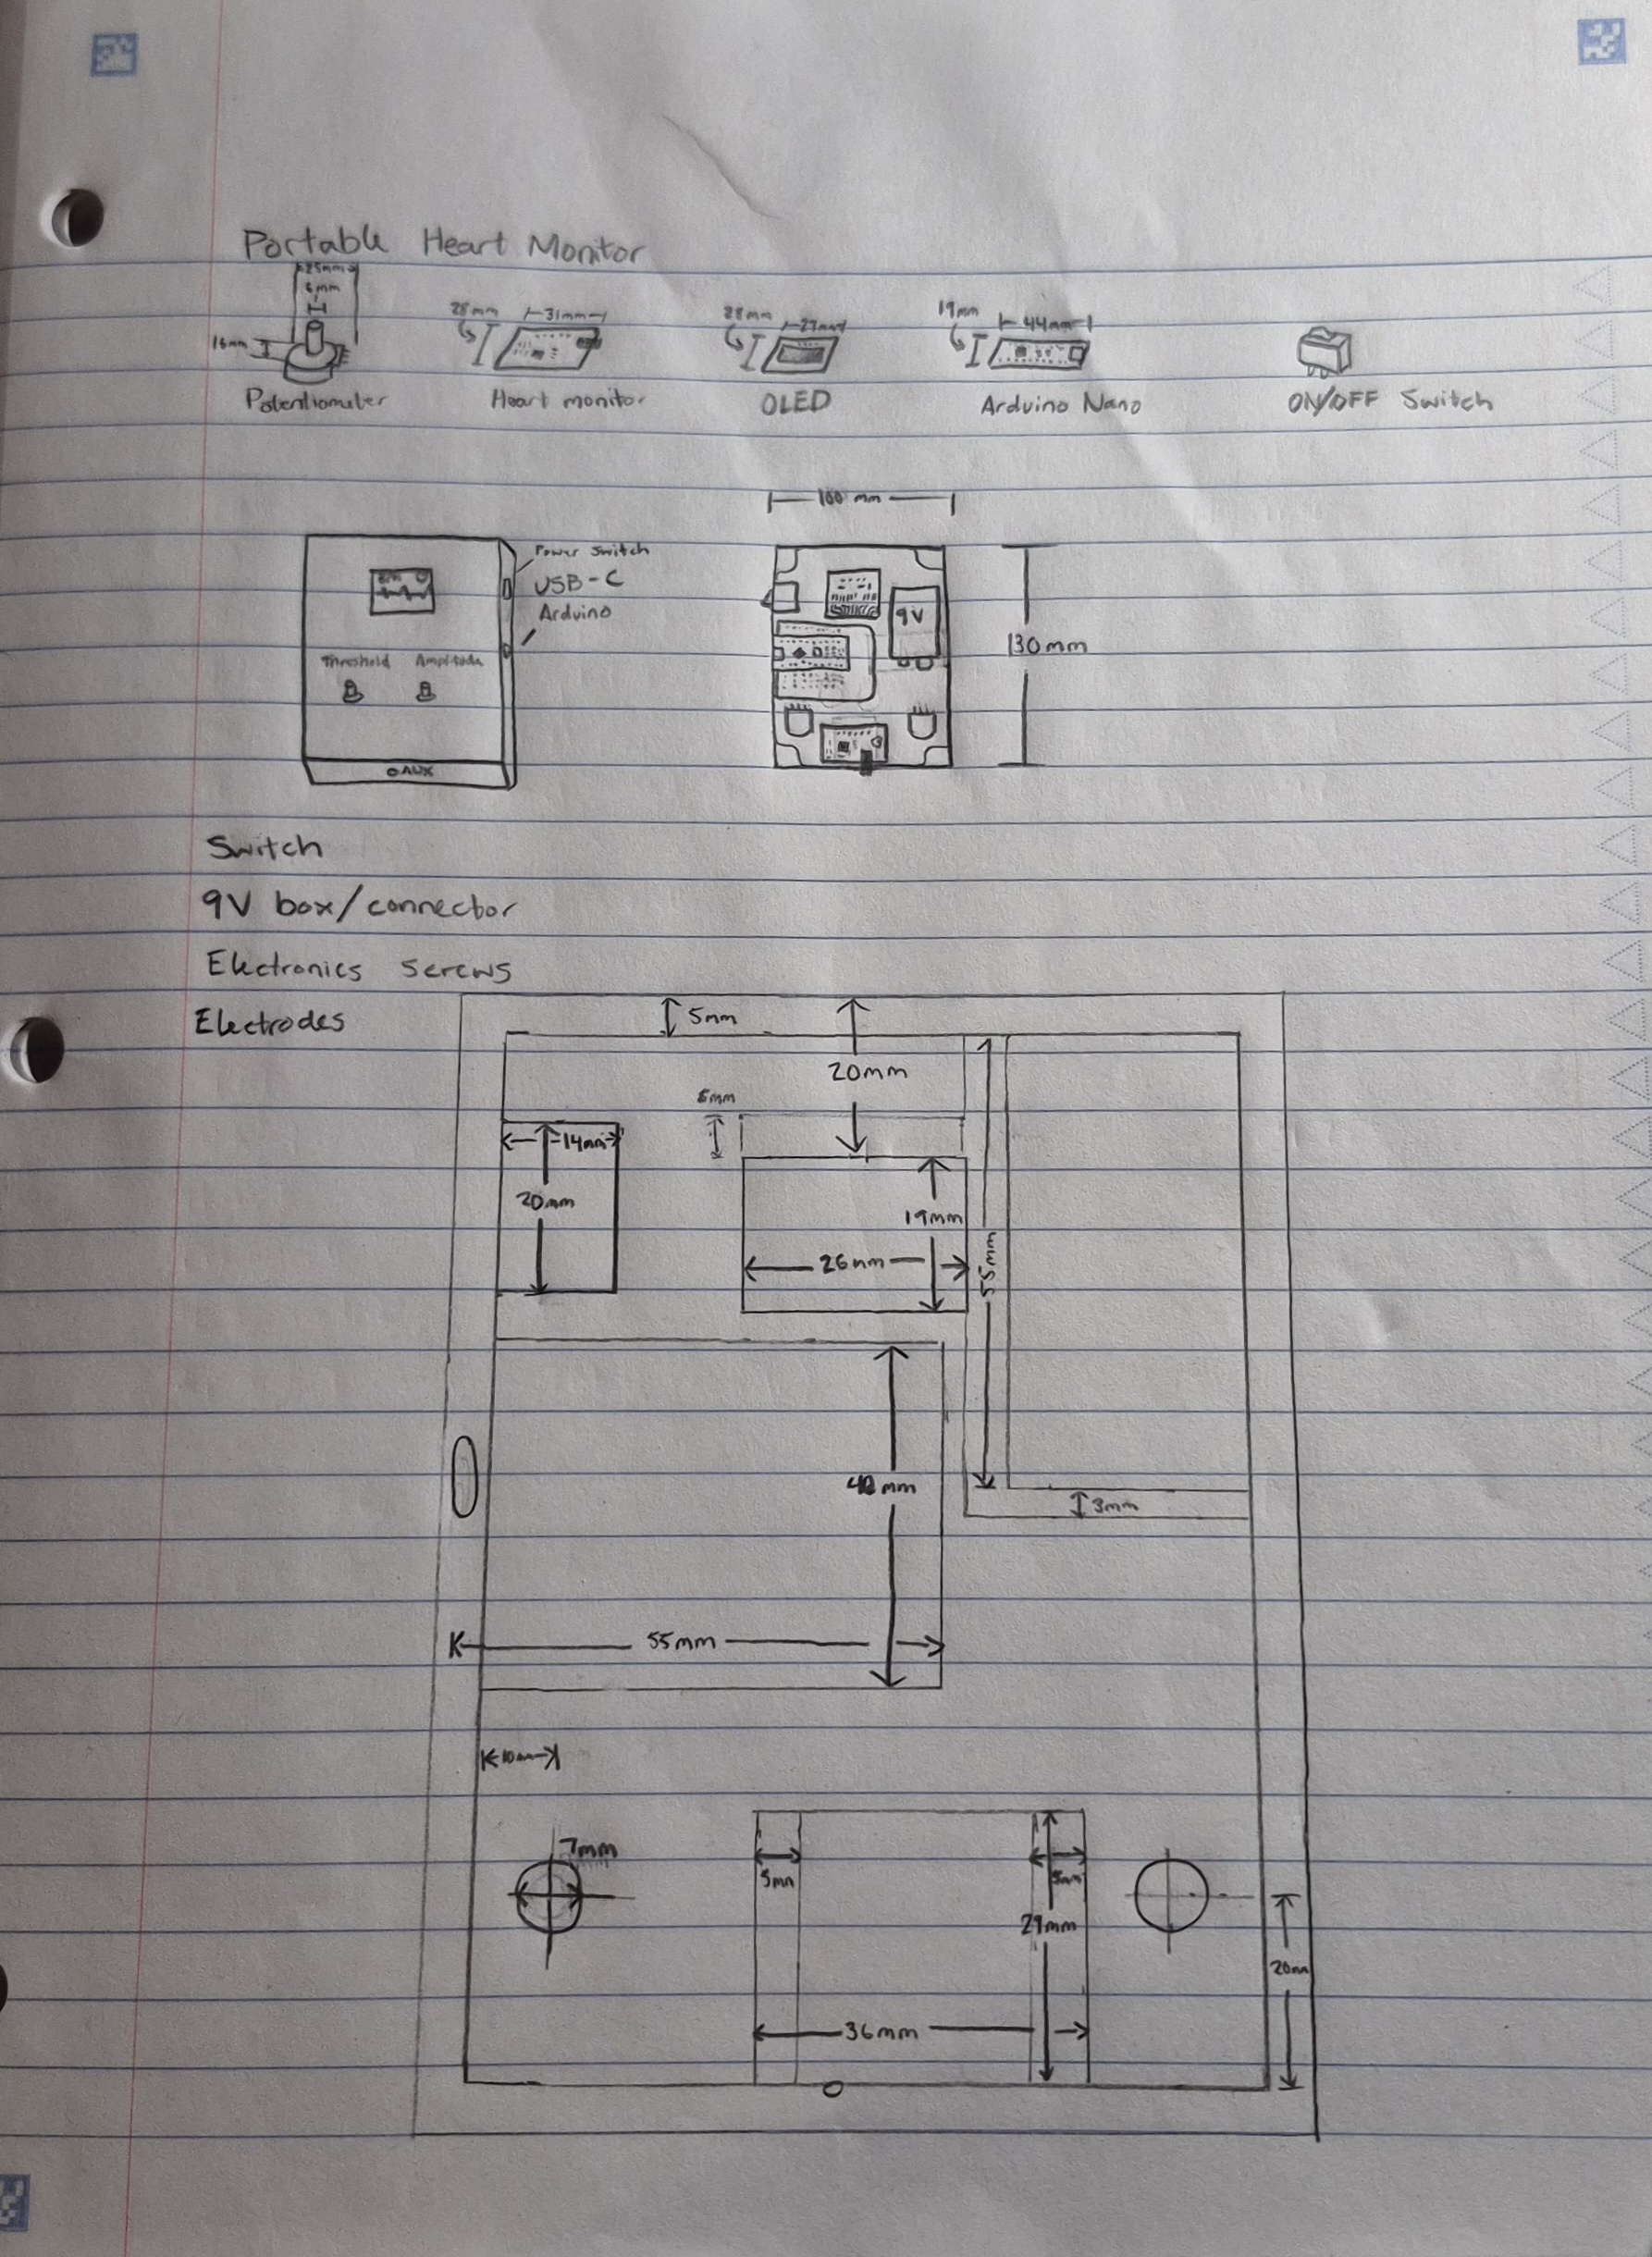 Portable Heart Monitor
25mm
6mm
16mm
Potentiometer
28mm
31mm
Heart monitor
28mm
27mm
OLED
19mm
44mm
Arduino Nano
ON/OFF Switch
100 mm
Power Switch
USB-C
Arduino
Threshold
AUX
9V
130mm
Switch
9V box/connector
Electronics screws
Electrodes
5mm
20mm
5mm
14mm
20mm
19mm
26mm
55mm
3mm
mm
55mm
10mm
7mm
5mm
5mm
29mm
20mm
36mm